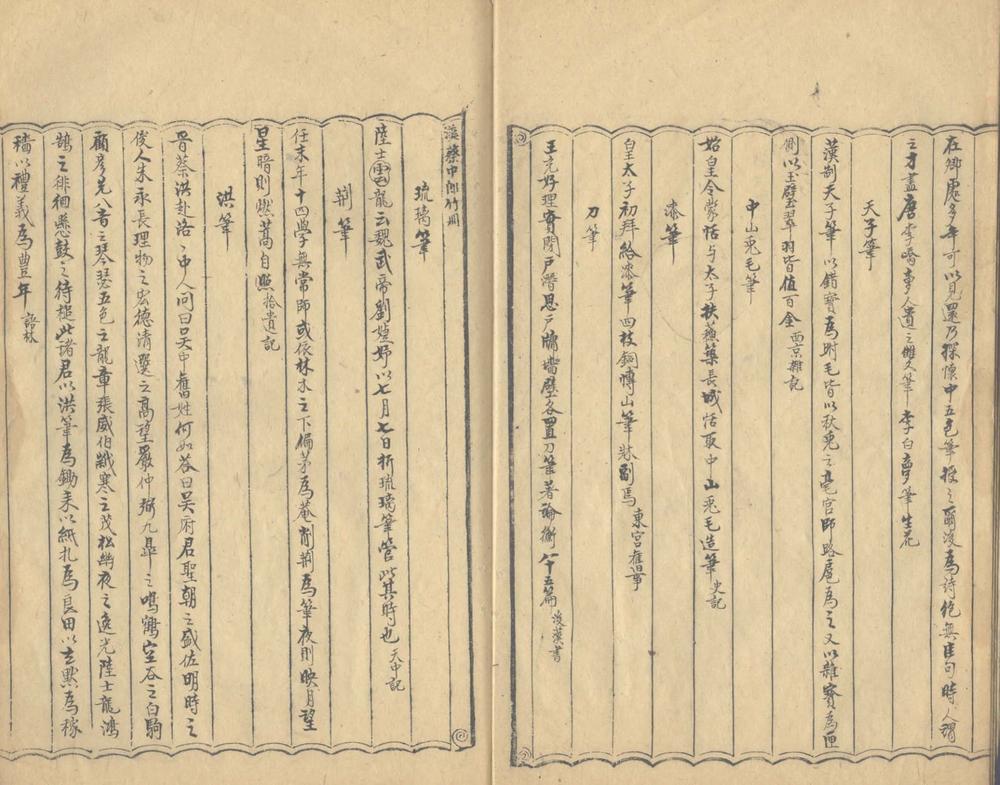 在卿處多年可以見還乃探懷中五色筆授之爾後為詩絕無佳句時人謂
之才盡唐李嶠夢人遺之雙筆李白夢筆生花
天子筆
漢制天子筆以錯寶為跗毛皆以秋兎之毫官師路扈為之又以雜寶為匣
側以玉璧翠羽皆值百金西京雜記
中山兎毛筆
始皇令蒙恬与太子扶蘓築長城恬取中山兎毛造筆史記
漆筆
皇太子初拜給漆筆四枝銅博山筆牀副焉東宮舊事
刀筆
王充好理實閉戶潛思戶牖墻壁各置刀筆著論衡八十五篇後漢書
漢蔡中郎竹冊
琉璃筆
陸士雲龍云魏武帝劉婕妤以七月七日折琉璃筆管此其時也天中記
荆筆
任末年十四學無常師或依林木之下編茅為菴削荆為筆夜則映月望
星暗則燃蒿自照拾遺記
洪筆
晋蔡洪赴洛之中人问曰吴中舊姓何如荅曰吴府君聖朝之盛佐明時之
俊人朱永長理物之宏德清選之高望嚴仲弼九皐之鳴鶴空谷之白駒
顧彥先八音之琴瑟五色之龍章張威伯歲寒之茂松幽夜之逸光陸士龍鴻
鵠之徘徊懸鼓之待槌此諸君以洪筆為鋤耒以紙札為良田以玄默為稼
穡以禮義為豐年語林